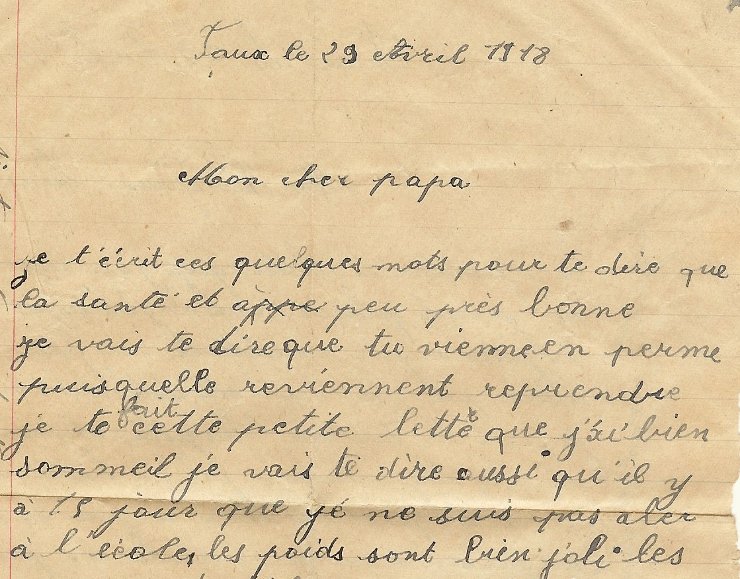 Faux le 29 Avril 1918
Mon cher papa
je t'écrit ces quelques mots pour te dire que
la santé et àppe peu près bonne
je vais te dire que tu vienne en perme
puisquelle reviennent reprendre
fait
je te cette petite lettre que j'ai bien
sommeil je vais te dire aussi qu'il y
à 15 jour que jé ne suis pas aler
à l'école, les poids sont bien joli les